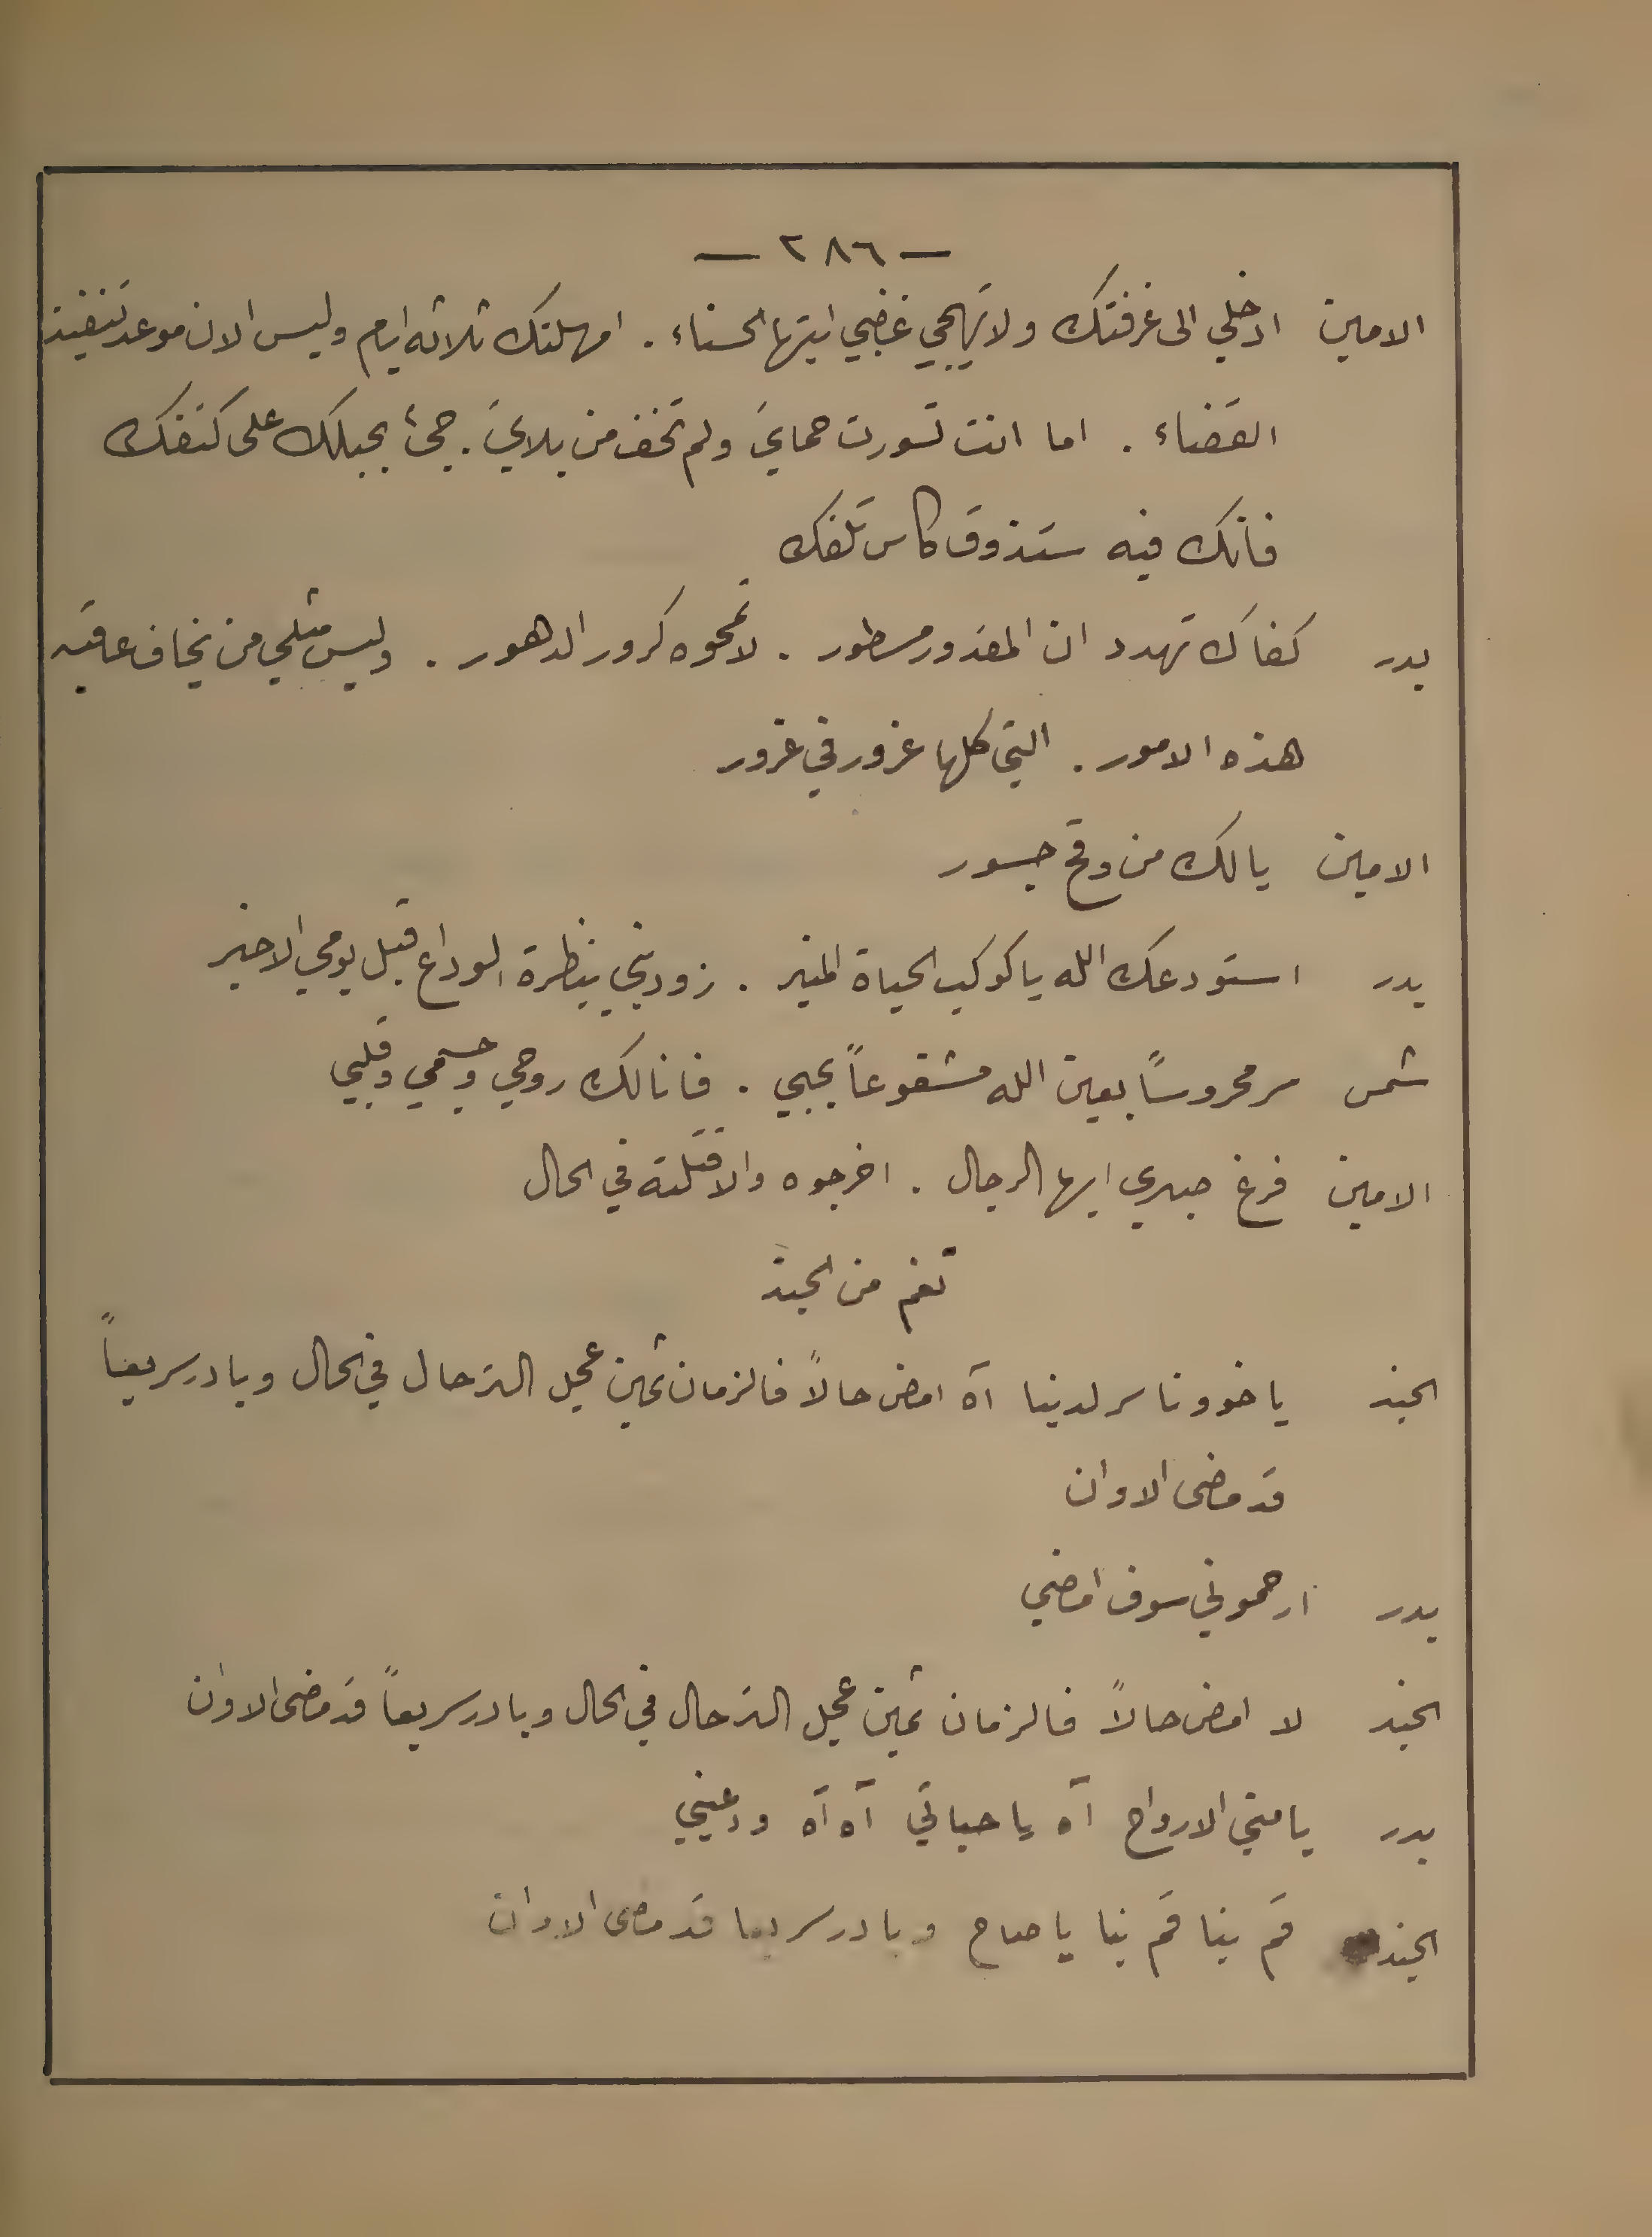 — ٢٨٦ —
الامين ادخلي الى غرفتك ولا تهيجي غضبي ايتها الحسناء . امهلتك ثلاثه ايام وليس الان موعد تنفيذ
القضاء . اما انت تسورت حماي ولم تخف من بلاي . جئ بحبلك على كتفك
فانك فيه ستذوق كاس تلفك
بدر كفاك تهدد ان المقدور مسطور . لا تمحوه كرور الدهور . وليس مثلي من يخاف عاقبه
هذه الامور . التي كلها غرور في غرور
الامين يالك من وقح جسور
بدر استودعك الله يا كوكب الحياة المنير . زوديني بنظرة الوداع قبل يومي الاخير
شمس سر محروساً بعين الله مشفوعاً بحبي . فانا لك روحي وجسمي وقلبي
الامين فرغ صبري ايها الرجال . اخرجوه والا قتلته في الحال
نغم من الجند
الجند يا خوونا سر لدينا آه امض حالاً فالزمان ثمين عجل الترحال في الحال وبادر سريعاً
قد مضى الاوان
بدر ارحموني سوف امضي
الجند لا امض حالاً فالزمان ثمين عجل الترحال في الحال وبادر سريعاً قد مضى الاوان
بدر يا منى الارواح آه يا حياتي آه آه ودعيني
الجند قم بنا قم بنا يا صاح وبادر سريعا قد مضى الاوان